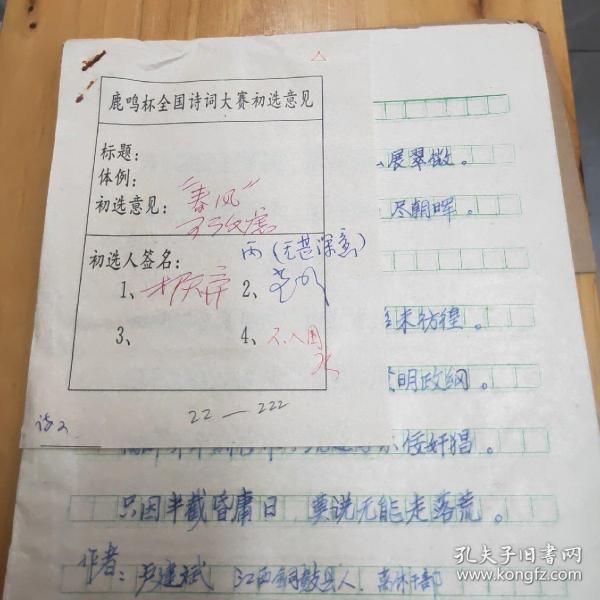 鹿鸣杯全国诗词大赛初选意见
标题:
体例:
初选意见: "春风"
丙(无甚深意)
初选人签名:
1、
2、
3、
4、不入围
22—222
诗2
展翠微。
尽朝晖。
来彷徨。
明政纲。
佞奸猖。
只因半截昏庸日 莫说无能走落荒。
作者: 尹建斌 江西铜鼓县人, 离休干部
孔夫子旧书网
www.kongfz.com